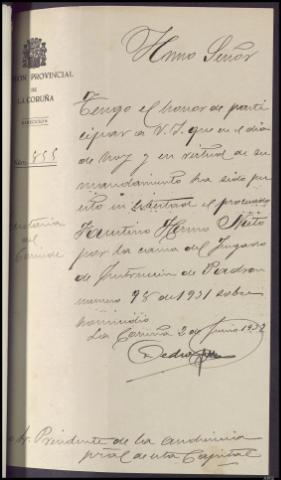 Ilmo Señor
ION PROVINCIAL
DE
LA CORUÑA
DIRECCION
Núm. 855
Tengo el honor de parti
cipar a V.I. que en el dia
de hoy y en virtud de su
mandamiento ha sido pu
esto en libertad el procesado
Faustino Hermo Nieto
por la causa del Juzgado
de Instrucción de Padron
numero 98 de 1931 sobre
homicidio
La Coruña 2 de Junio 1932
Pedro
Sr. Presidente de la Audiencia
pral de esta Capital